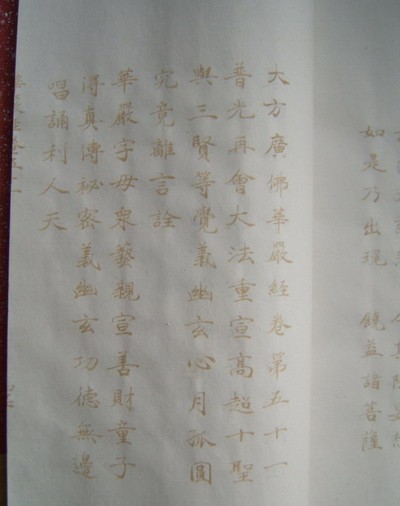 如是乃出現 饒益諸菩薩
大方廣佛華嚴經卷第五十一
普光再會大法重宣高超十聖
與三賢等覺義幽玄心月孤圓
究竟離言詮
華嚴字母眾藝親宣善財童子
得真傳祕密義幽玄功德無邊
唱誦利人天